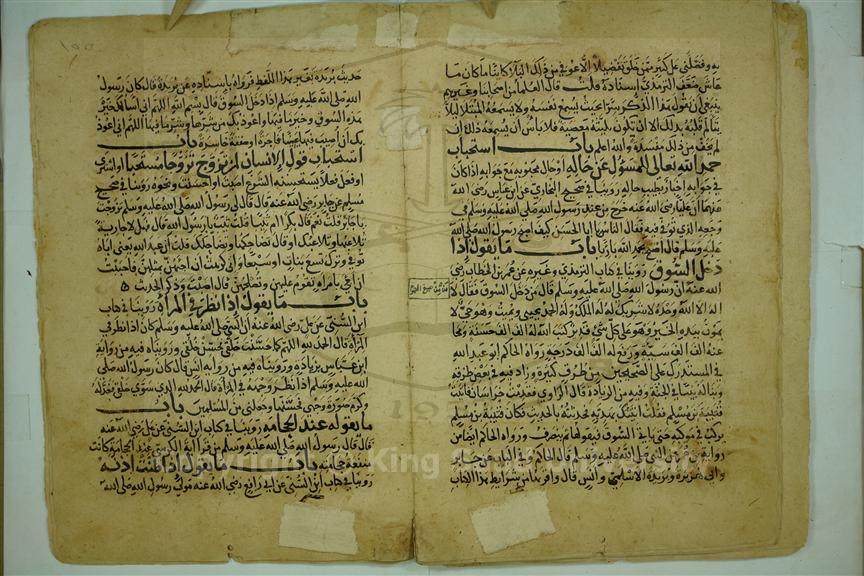 به وفضلني على كثير ممن خلق تفضيلا إلا عوفي من ذلك البلاء كائنا ما كان ما
عاش ضعف الترمذي اسناده قلت قال العلماء من اصحابنا وغيرهم
ينبغي ان يقول هذا الذكر سرا بحيث يسمع نفسه ولا يسمعه المبتلى ليلا
يتالم قلبه بذلك الا ان تكون بليته معصية فلا باس ان يسمعه ذلك ان
لم يخف من ذلك مفسدة والله اعلم باب استحباب
حمد الله تعالى للمسؤل عن حاله او حال محبوبه مع جوابه اذا كان
في جوابه اخبار بطيب حاله روينا في صحيح البخاري عن ابن عباس رضي الله
عنهما ان عليا رضي الله عنه خرج من عند رسول الله صلى الله عليه وسلم في
وجعه الذي توفي فيه فقال الناس يا ابا الحسن كيف اصبح رسول الله صلى الله
عليه وسلم قال اصبح بحمد الله بارئا باب ما يقول اذا
دخل السوق روينا في كتاب الترمذي وغيره عن عمر بن الخطاب رضي
الله عنه ان رسول الله صلى الله عليه وسلم قال من دخل السوق فقال لا
اله الا الله وحده لا شريك له له الملك وله الحمد يحيي ويميت وهو حي لا
يموت بيده الخير وهو على كل شيء قدير كتب الله له الف الف حسنة ومحا
عنه الف الف سيئة ورفع له الف الف درجة رواه الحاكم ابو عبد الله
في المستدرك على الصحيحين من طرق كثيرة وزاد فيه في بعض طرقه
وبنى له بيتا في الجنة وفيه من الزيادة قال الراوي فقدمت خراسان فاتيت
قتيبة بن مسلم فقلت اتيتك بهدية فحدثته بالحديث فكان قتيبة بن مسلم
يركب في موكبه حتى ياتي السوق فيقولها ثم ينصرف ورواه الحاكم ايضا من
رواية ابن عمر عن النبي صلى الله عليه وسلم قال الحاكم وفي الباب عن جابر
وابي هريرة وبريدة الاسلمي وانس قال واقربها من شرايط هذا الكتاب
حديث بريدة بغير هذا اللفظ فرواه باسناده عن بريدة قال كان رسول
الله صلى الله عليه وسلم اذا دخل السوق قال بسم الله اللهم اني اسالك خير
هذه السوق وخير ما فيها واعوذ بك من شرها وشر ما فيها اللهم اني اعوذ
بك ان اصيب فيها يمينا فاجرة او صفقة خاسرة باب
استحباب قول الانسان لمن تزوج تزوجا مستحبا او اشترى
او فعل فعلا يستحسنه الشرع اصبت او احسنت ونحوه روينا في صحيح
مسلم عن جابر رضي الله عنه قال قال لي رسول الله صلى الله عليه وسلم تزوجت
يا جابر قلت نعم قال بكرا ام ثيبا قلت ثيبا يا رسول الله قال فهلا جارية
تلاعبها وتلاعبك او قال تضاحكها وتضاحكك قلت ان عبد الله يعني اباه
توفي وترك تسع بنات او سبعا واني كرهت ان اجيئهن بمثلهن فاحببت
ان اجيء بامراة تقوم عليهن وتصلحهن قال اصبت وذكر الحديث
باب ما يقول اذا نظر في المرآة روينا في كتاب
ابن السني عن علي رضي الله عنه ان النبي صلى الله عليه وسلم كان اذا نظر في
المرآة قال الحمد لله اللهم كما حسنت خلقي فحسن خلقي ورويناه فيه من رواية
ابن عباس بزيادة ورويناه فيه من رواية انس قال كان رسول الله صلى
الله عليه وسلم اذا نظر وجهه في المرآة قال الحمد لله الذي سوى خلقي فعدله
وكرم صورة وجهي فحسنها وجعلني من المسلمين باب
ما يقوله عند الحجامة روينا في كتاب ابن السني عن علي رضي الله عنه
قال قال رسول الله صلى الله عليه وسلم من قرا آية الكرسي عند الحجامة كانت
منفعة حجامته باب ما يقول اذا طنت اذنه
روينا في كتاب ابن السني عن ابي رافع رضي الله عنه مولى رسول الله صلى الله